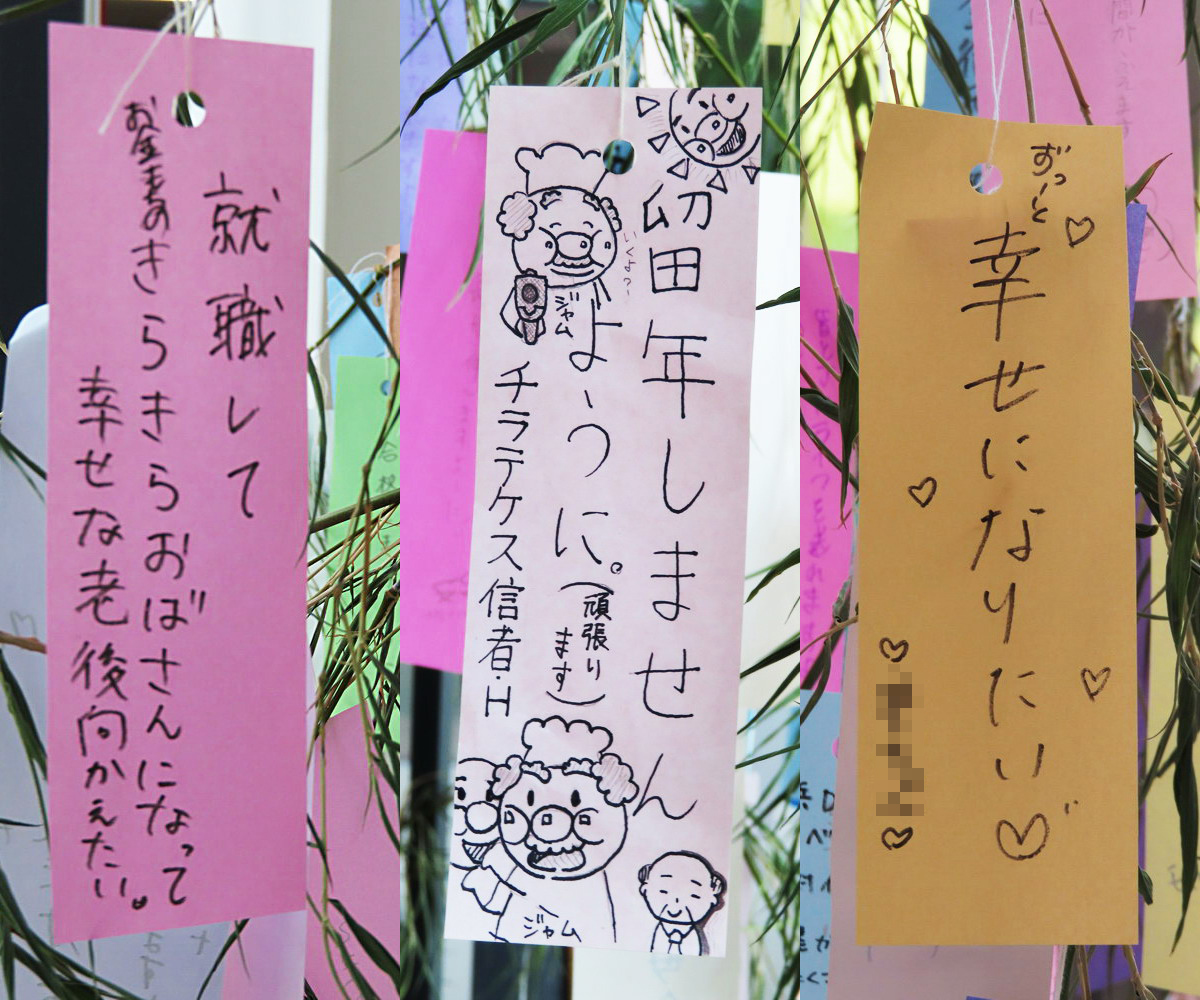 就職して
お金もちのきらきらおばさんになって
幸せな老後向かえたい。
留田年しません
いくよっー
よーうに。
(頑張り
ます)
ジャム
チラテケス信者・H
ジャム
ずっーと
幸せになりたい